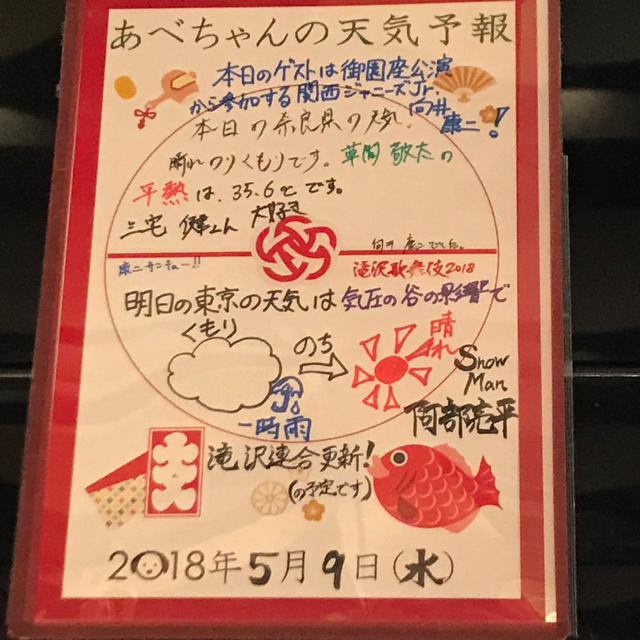 あべちゃんの天気予報
本日のゲストは御園座公演
から参加する関西ジャニーズJr.
向井
康二!
本日の奈良県の天気。
晴れのりくもりです。草間 敬太の
平熱は、35.6℃です。
三宅 健くん 大好き
向井 康二でした。
康二サンキュー!!
滝沢歌舞伎2018
明日の東京の天気は気圧の谷の影響で
くもり
のち
晴れ
一時雨
Snow
Man
阿部亮平
大入
滝沢連合更新!
(の予定です)
2018年5月9日(水)